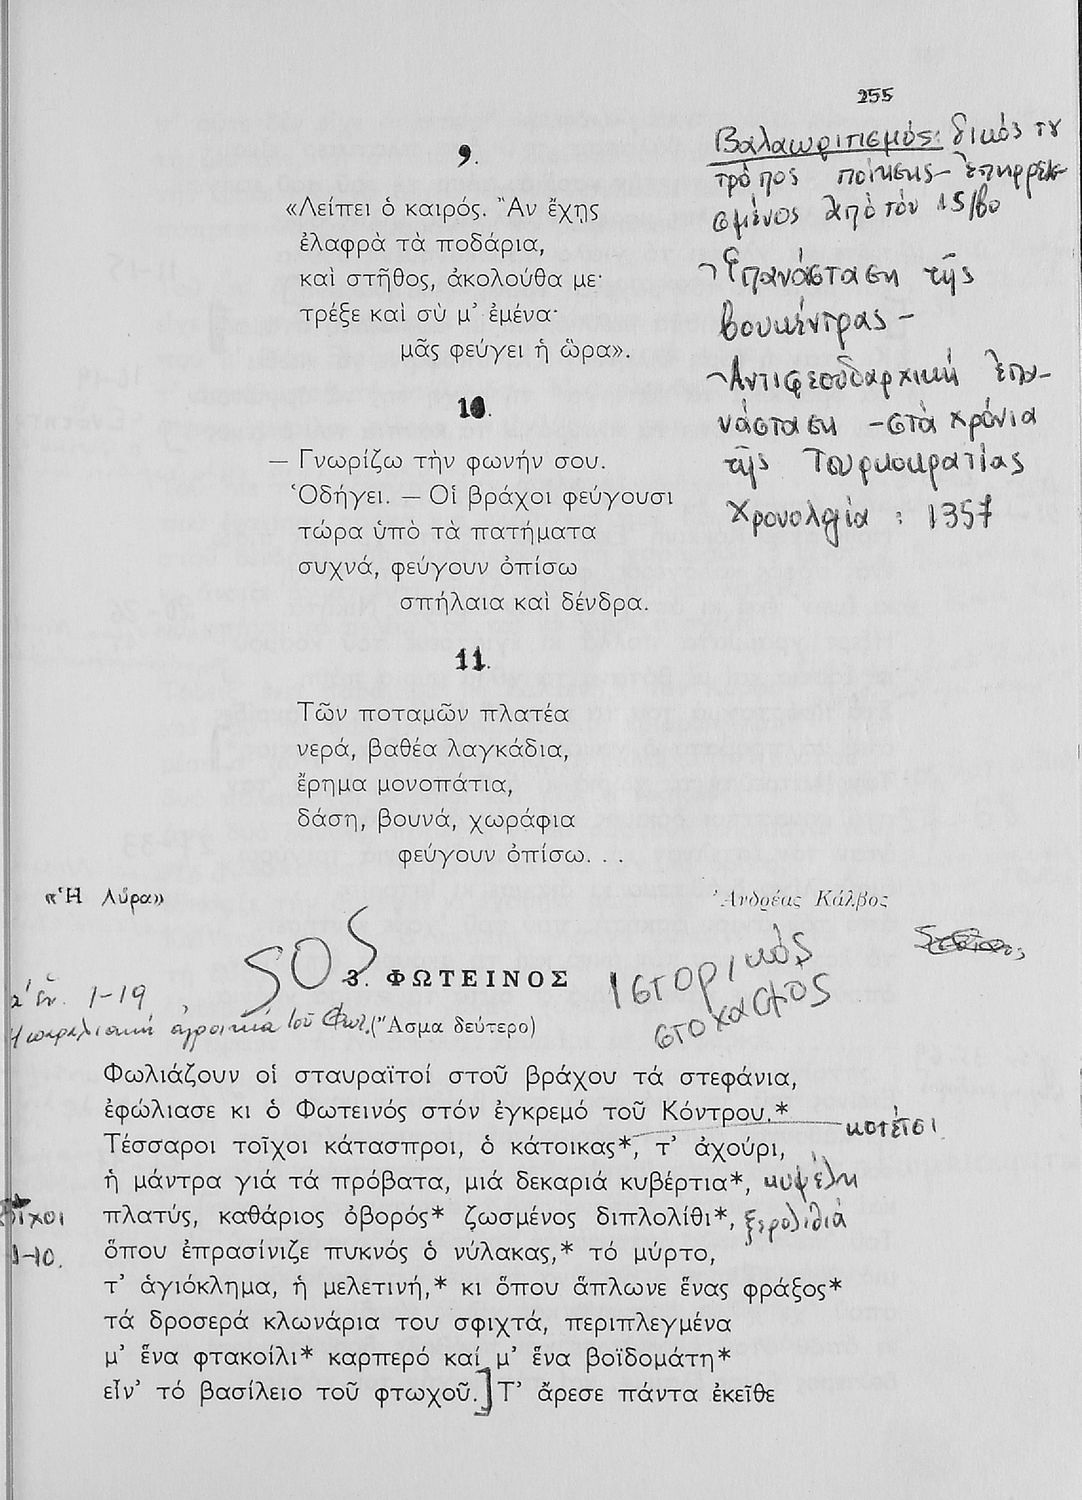 255
9.
«Λείπει ὁ καιρός. Ἂν ἔχῃς
ἐλαφρὰ τὰ ποδάρια,
καὶ στῆθος, ἀκολούθα με·
τρέξε καὶ σὺ μ' ἐμένα·
μᾶς φεύγει ἡ ὥρα».
10.
— Γνωρίζω τὴν φωνήν σου.
Ὁδήγει. — Οἱ βράχοι φεύγουσι
τώρα ὑπὸ τὰ πατήματα
συχνά, φεύγουν ὀπίσω
σπήλαια καὶ δένδρα.
11.
Τῶν ποταμῶν πλατέα
νερά, βαθέα λαγκάδια,
ἔρημα μονοπάτια,
δάση, βουνά, χωράφια
φεύγουν ὀπίσω. . .
«Ἡ Λύρα»
Ἀνδρέας Κάλβος
Βαλαωριτισμός: δικός του
τρόπος ποίησης - ἐπηρρεα-
σμένος ἀπὸ τὸν 15/βο
Ἐπανάσταση τῆς
βουκέντρας -
Ἀντιφεουδαρχική ἐπα-
νάσταση - στὰ χρόνια
τῆς Τουρκοκρατίας
Χρονολογία : 1357
SOS
3. ΦΩΤΕΙΝΟΣ
Ἱστορικός
στοχασμός
α' ἑν. 1-19
ἀγροικιά τοῦ Φωτ.
(Ἄσμα δεύτερο)
Φωλιάζουν οἱ σταυραϊτοί στοῦ βράχου τά στεφάνια,
ἐφώλιασε κι ὁ Φωτεινός στόν ἐγκρεμό τοῦ Κόντρου.*
Τέσσαροι τοῖχοι κάτασπροι, ὁ κάτοικας*, τ' ἀχούρι, κοτέτσι
ἡ μάντρα γιά τά πρόβατα, μιά δεκαριά κυβέρτια*, κυψέλη
πλατύς, καθάριος ὀβορός* ζωσμένος διπλολίθι*, ξερολιθιά
ὅπου ἐπρασίνιζε πυκνός ὁ νύλακας,* τό μύρτο,
τ' ἁγιόκλημα, ἡ μελετινή,* κι ὅπου ἅπλωνε ἕνας φράξος*
τά δροσερά κλωνάρια του σφιχτά, περιπλεγμένα
μ' ἕνα φτακοίλι* καρπερό καί μ' ἕνα βοϊδομάτη*
εἶν' τό βασίλειο τοῦ φτωχοῦ.] Τ' ἄρεσε πάντα ἐκεῖθε
στίχοι
1-10.